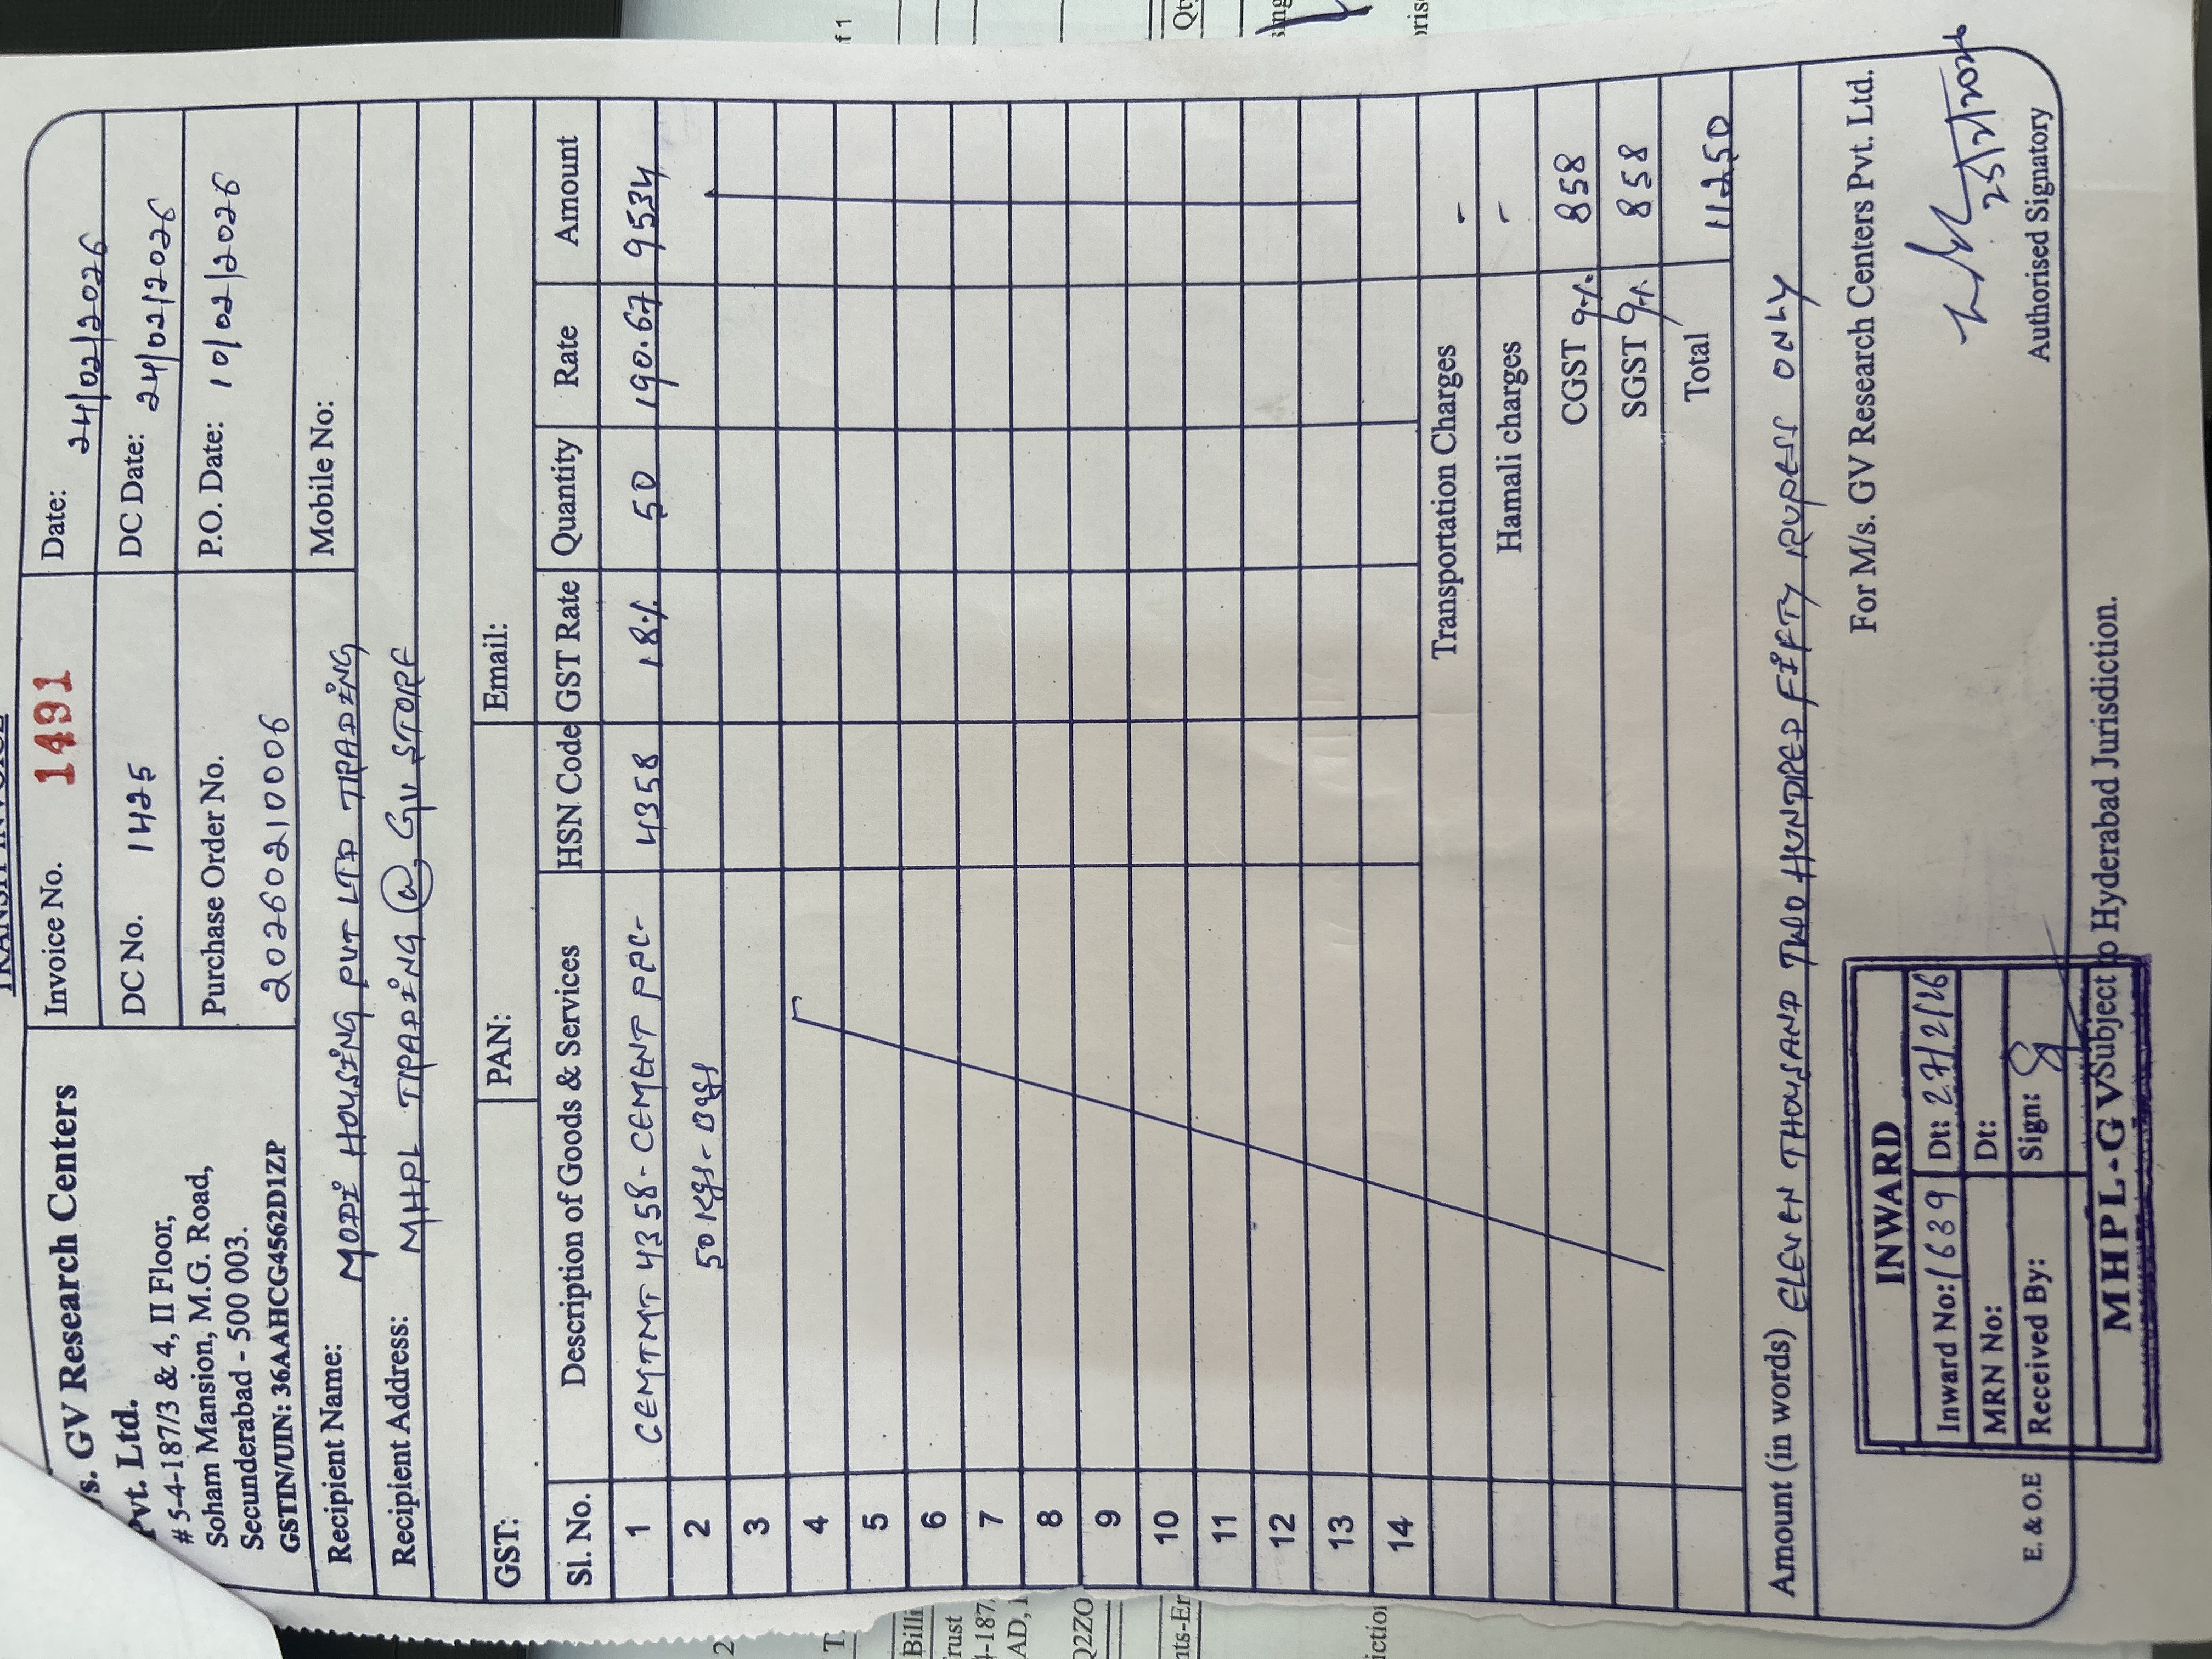 GV Research Centers
Pvt. Ltd.
# 5-4-187/3 & 4, II Floor,
Soham Mansion, M.G. Road,
Secunderabad - 500 003.
GSTIN/UIN: 36AAHCG4562D1ZP
Invoice No. 1491
Date: 24/02/2026
DC No. 1425
DC Date: 24/02/2026
Purchase Order No. 20260210006
P.O. Date: 10/02/2026
Recipient Name: MODI HOUSING PVT LTD TRADING
Mobile No:
Recipient Address: MHPL TRADING @ GV STORE
GST: PAN: Email:
Sl. No. Description of Goods & Services HSN Code GST Rate Quantity Rate Amount
1 CEMTMT 4358- CEMENT PPC- 4358 18% 50 190.67 9534
2 50 Kgs- Bags
3
4
5
6
7
8
9
10
11
12
13
14
Transportation Charges -
Hamali charges -
CGST 9% 858
SGST 9% 858
Total 11250
Amount (in words) ELEVEN THOUSAND TWO HUNDRED FIFTY RUPESS ONLY
For M/s. GV Research Centers Pvt. Ltd.
Authorised Signatory
INWARD
Inward No: 1639 Dt: 27/2/26
MRN No: Dt:
Received By: Sign:
MHPL-GV
E. & O.E
Subject to Hyderabad Jurisdiction.